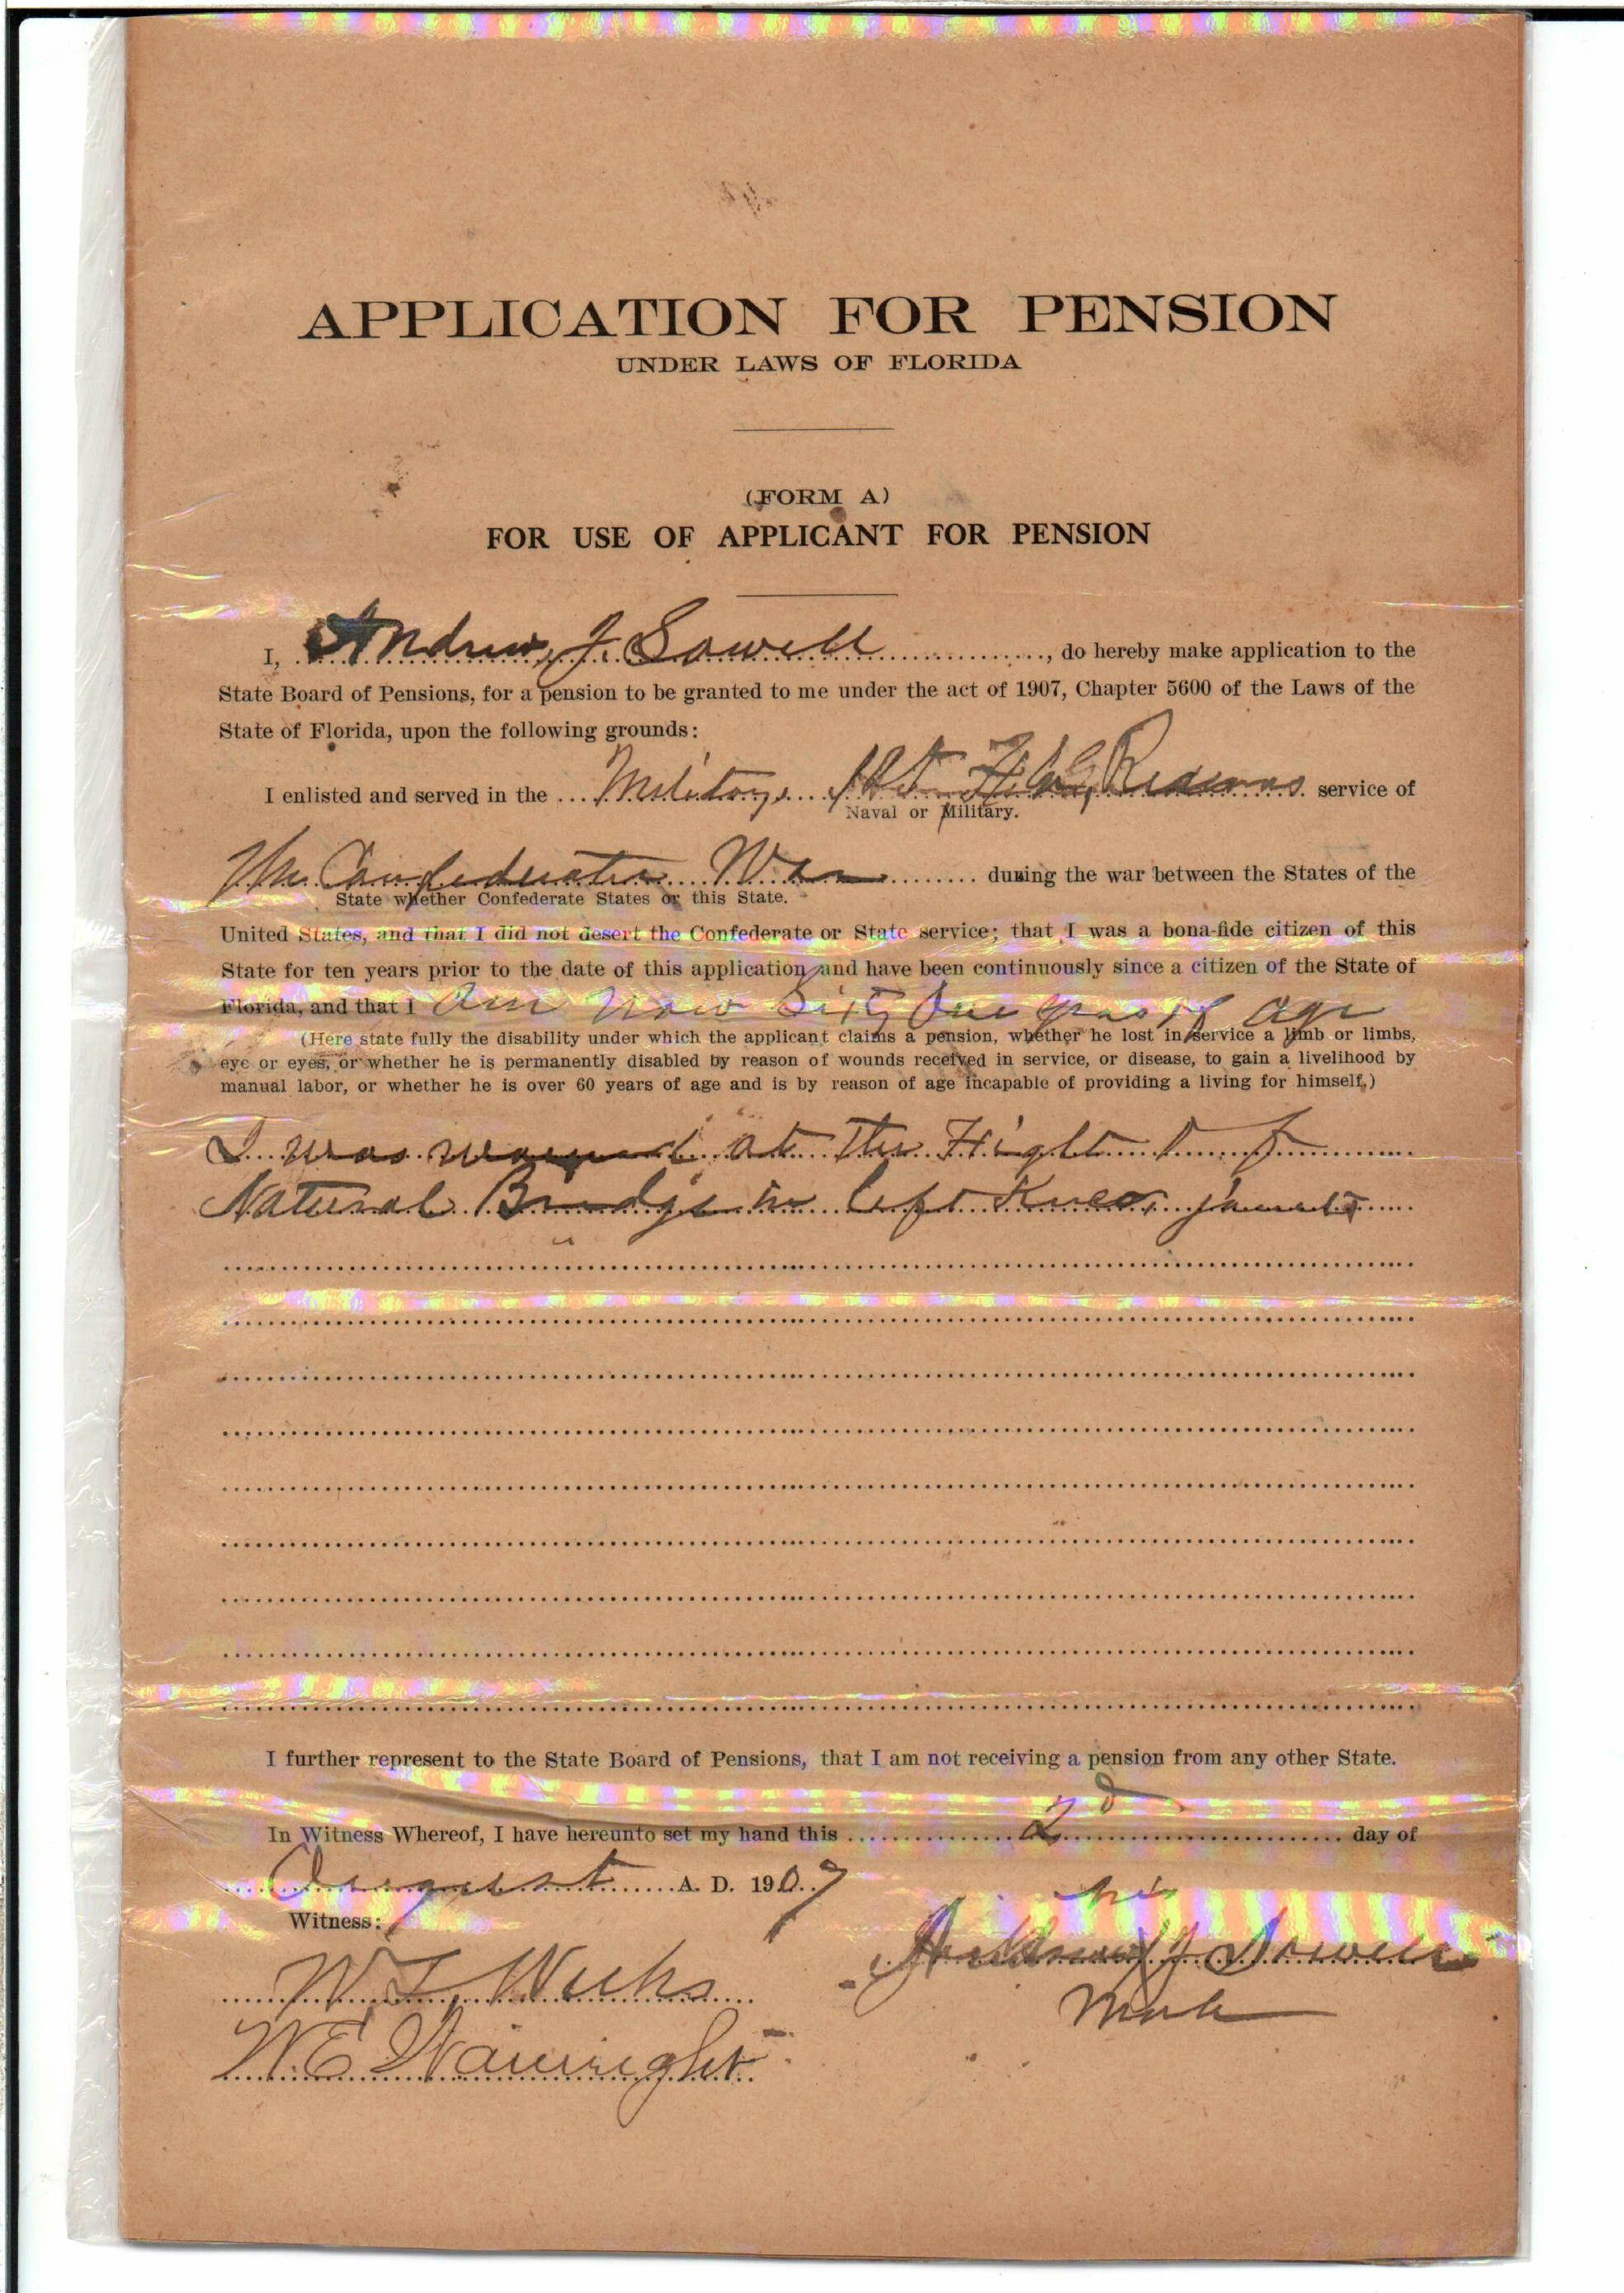 APPLICATION FOR PENSION
UNDER LAWS OF FLORIDA
(FORM A)
FOR USE OF APPLICANT FOR PENSION
I, Andrew J. Sowell, do hereby make application to the
State Board of Pensions, for a pension to be granted to me under the act of 1907, Chapter 5600 of the Laws of the
State of Florida, upon the following grounds:
I enlisted and served in the Military 1st service of
Naval or Military.
The Confederate War during the war between the States of the
State whether Confederate States or this State.
United States, and that I did not desert the Confederate or State service; that I was a bona-fide citizen of this
State for ten years prior to the date of this application, and have been continuously since a citizen of the State of
Florida, and that I am now Sixty One years of age
(Here state fully the disability under which the applicant claims a pension, whether he lost in service a limb or limbs,
eye or eyes, or whether he is permanently disabled by reason of wounds received in service, or disease, to gain a livelihood by
manual labor, or whether he is over 60 years of age and is by reason of age incapable of providing a living for himself.)
I was wound at the Fight
Natural Bridge in left Knee
I further represent to the State Board of Pensions, that I am not receiving a pension from any other State.
In Witness Whereof, I have hereunto set my hand this 2d day of
August A. D. 1907
Witness:
his
W. L. Weeks Andrew J Sowell
mark
W. E. Wainright